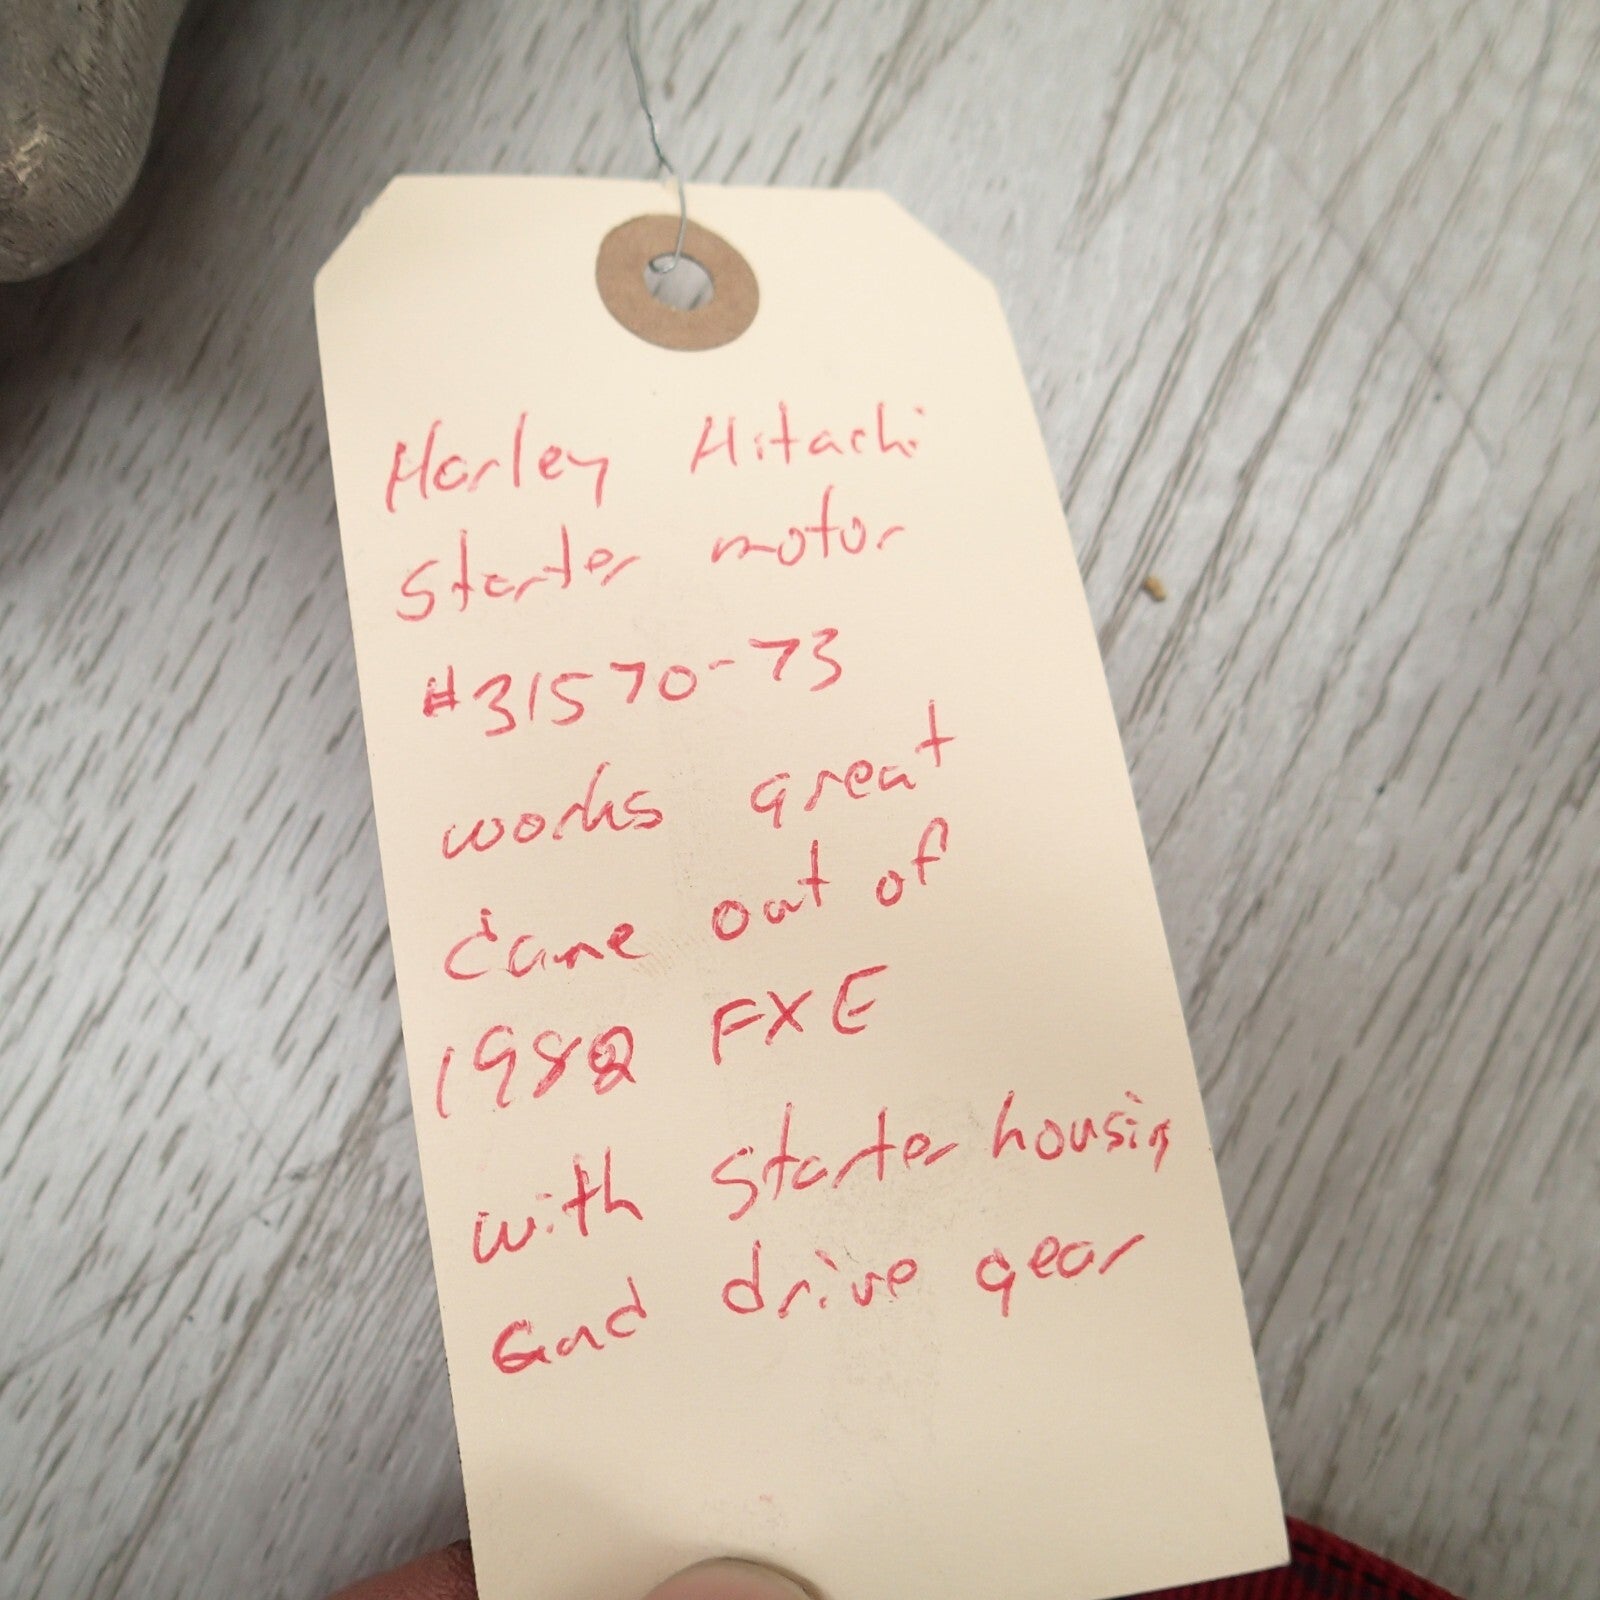 Harley Hitachi
Starter motor
#31570-73
works great
came out of
1982 FXE
with starter housing
and drive gear